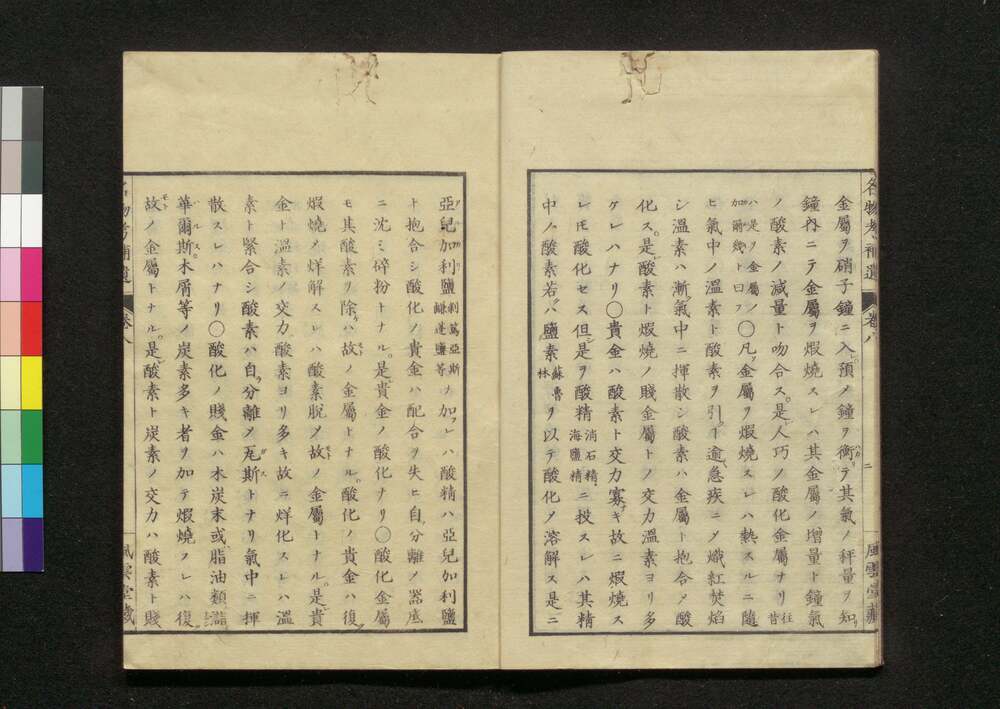 名物考補遺 卷八 二 風雲堂藏
金屬ヲ硝子鐘ニ入レ預メ鐘ヲ衡テ其氣ノ秤量ヲ知リ
鐘內ニテ金屬ヲ煆燒スレハ其金屬ノ增量ト鐘氣
ノ酸素ノ減量ト吻合ス是レ人巧ノ酸化金屬ナリ往昔
ハ是ヲ金屬ノ加爾幾ト曰フ〇凡ソ金屬ヲ煆燒スレハ熱スルニ隨
ヒ氣中ノ溫素ト酸素ヲ引ヿ逾急疾ニメ熾紅焚焰
シ溫素ハ漸ク氣中ニ揮散シ酸素ハ金屬ト抱合メ酸
化ス是レ酸素ト煆燒ノ賤金屬トノ交力溫素ヨリ多
ケレハナリ〇貴金ハ酸素ト交力寡キ故ニ煆燒ス
レ𪜈酸化セス但シ是ヲ酸精消石精海鹽精ニ投スレハ其精
中ノ酸素若クハ鹽素蘇魯林ヲ以テ酸化メ溶解ス是ニ
亞兒加利鹽剥篤亞斯鹻蓬鹽等ヲ加フレハ酸精ハ亞兒加利鹽
ト抱合シ酸化ノ貴金ハ配合ヲ失ヒ自ラ分離メ器底
ニ沈ミ碎粉トナル是レ貴金ノ酸化ナリ〇酸化金屬
モ其酸素ヲ除ケハ故ノ金屬トナル酸化ノ貴金ハ復ヒ
煆燒メ烊解スレハ酸素脫メ故ノ金屬トナル是レ貴
金ト溫素ノ交力酸素ヨリ多キ故ニ烊化スレハ溫
素ト緊合シ酸素ハ自ラ分離メ瓦斯トナリ氣中ニ揮
散スレハナリ〇酸化ノ賤金ハ木炭末或ハ脂油類
華爾斯木屑等ノ炭素多キ者ヲ加テ煆燒スレハ復ヒ
故ノ金屬トナル是レ酸素ト炭素ノ交力ハ酸素ト賤
名物考補遺 卷八 風雲堂藏